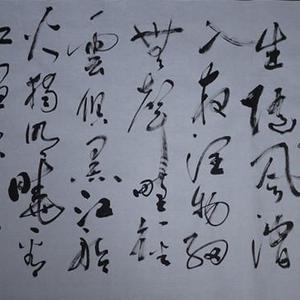 生隨風潛
入夜潤物細
無聲野徑
雲俱黑江船
火獨明曉看